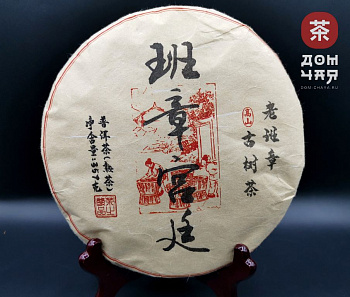 班章宮廷
老班章
高山
古树茶
普洱茶(熟茶)
净含量:357克
茶
ДОМ
ЧАЯ
DOM-CHAYA.RU